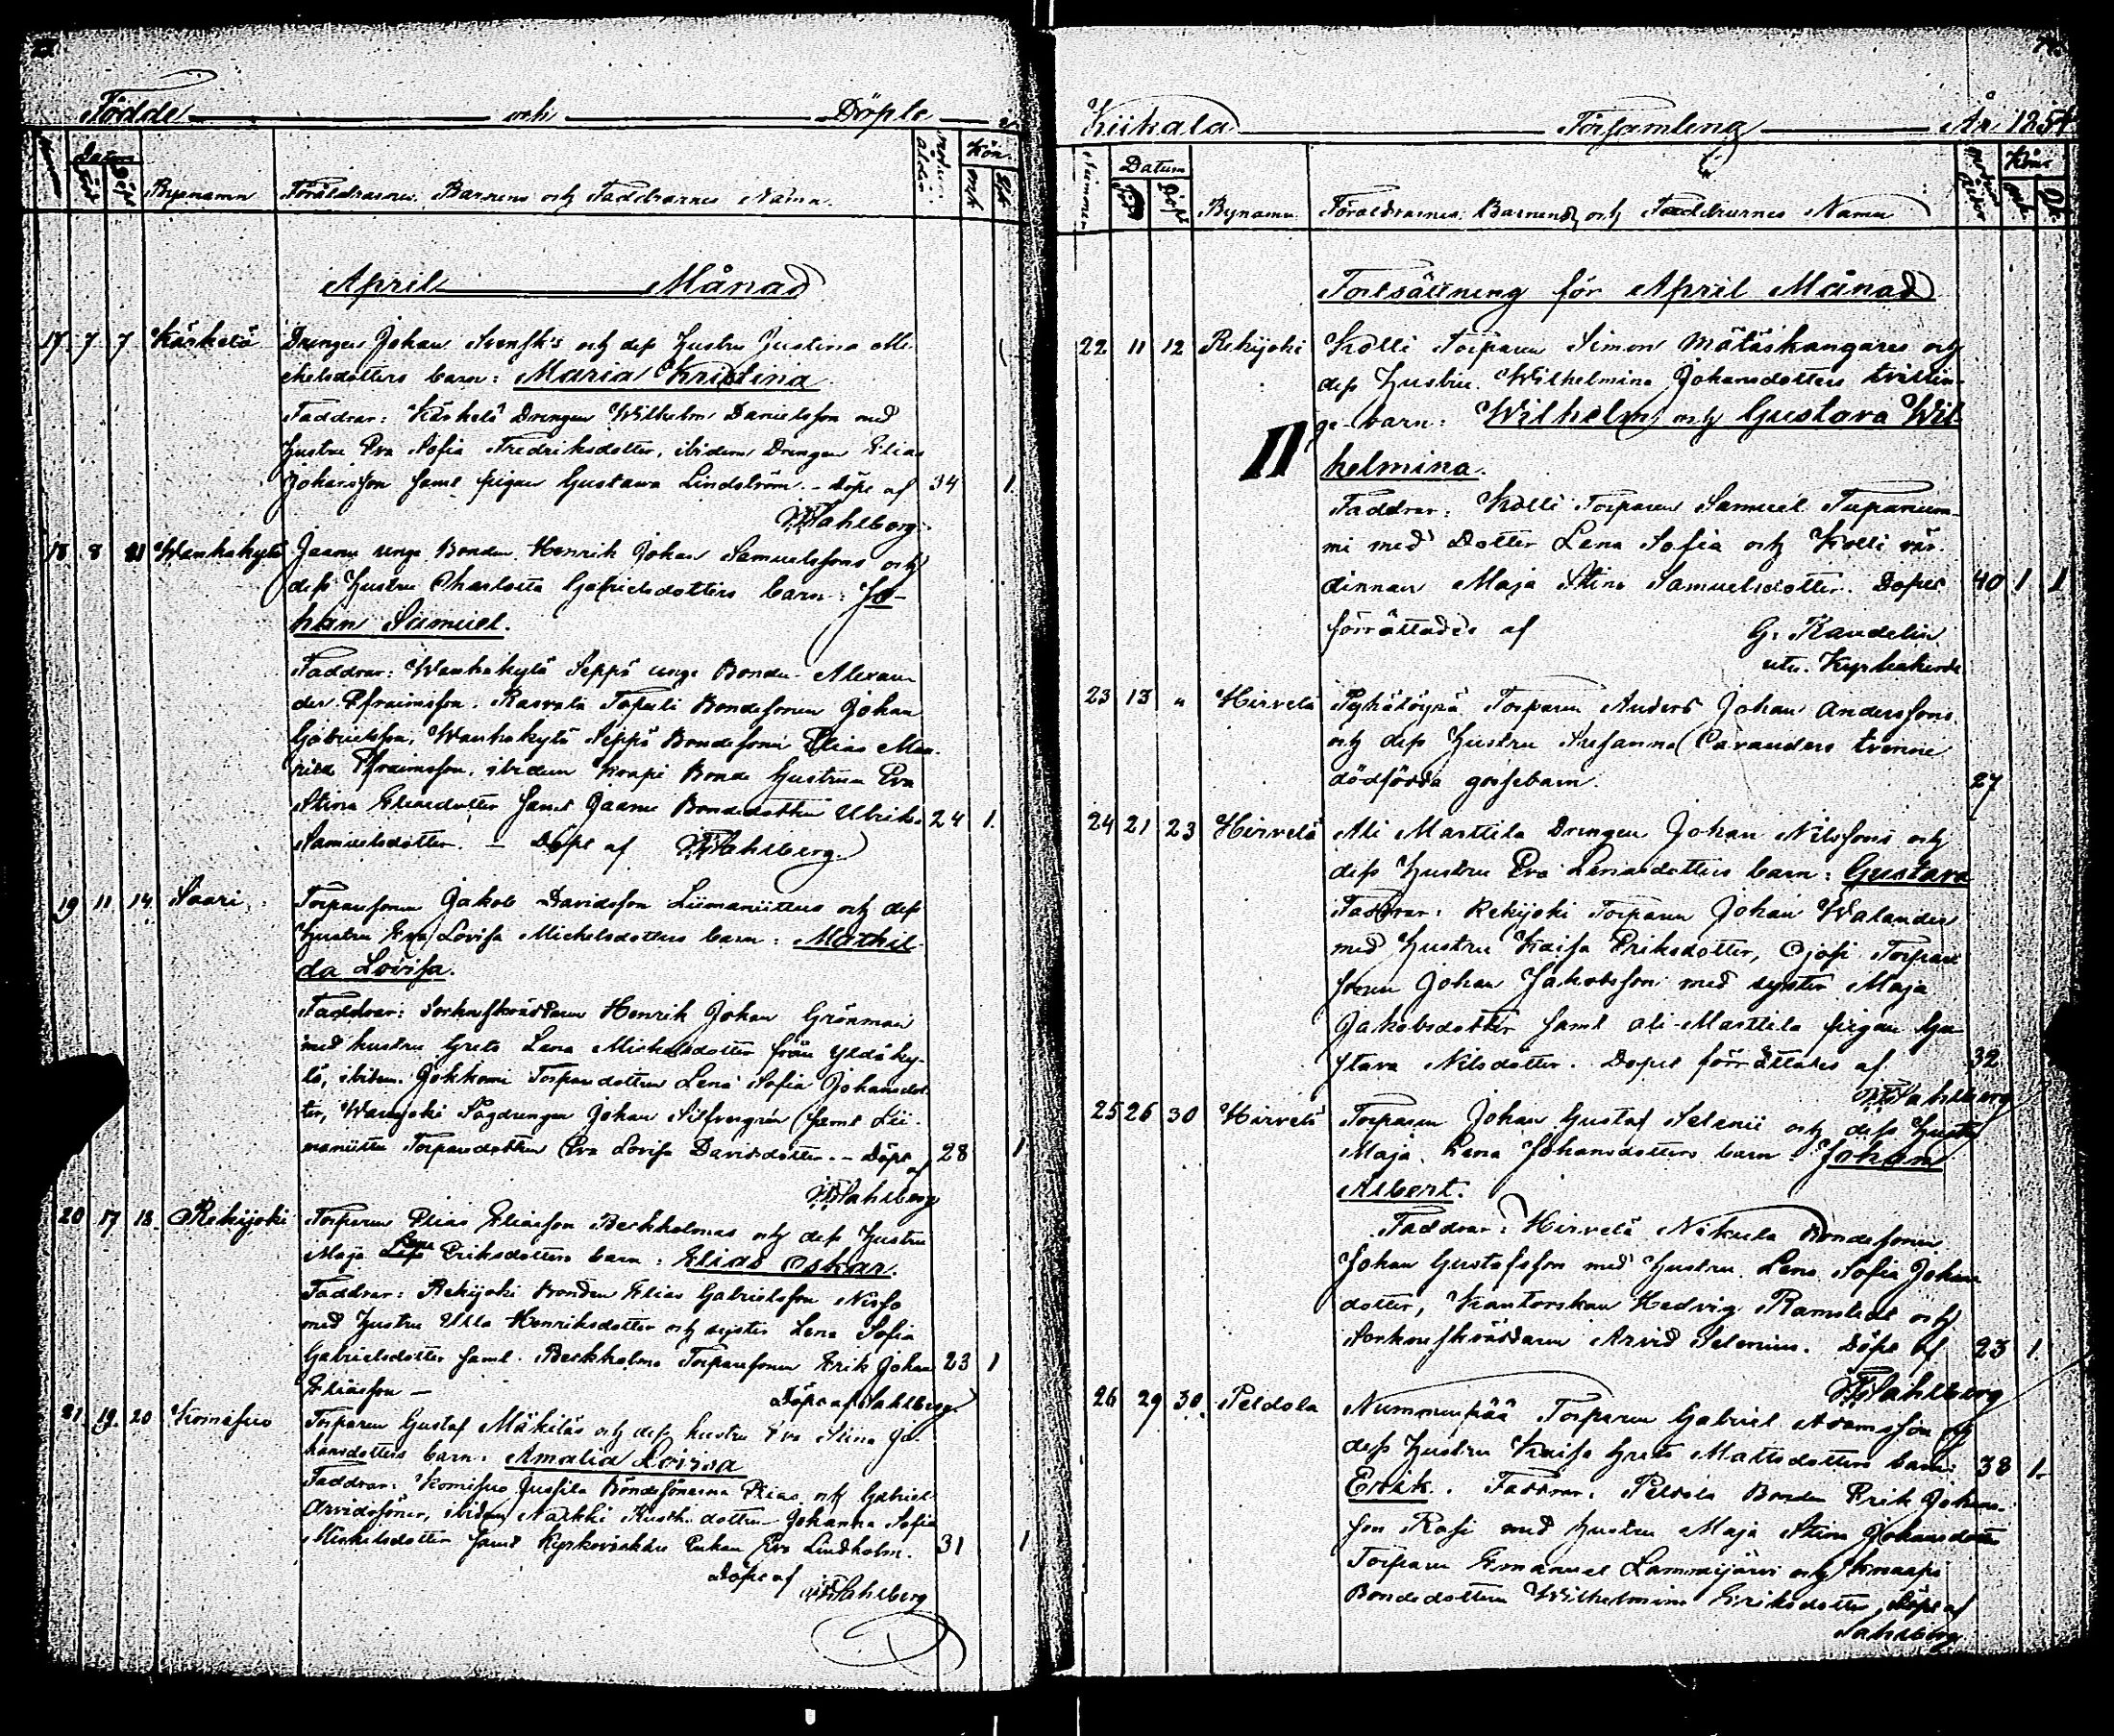 Födde och Döpte i
Datum
Född Döpt
Bynamn Föräldrarnes Barnens och Faddrarnes Namn.
Kön.
April Månad
17. 7 7 Kärkelä Drengen Johan Svensk's och dess Hustru Justina Mi-
chelsdotters barn: Maria Kristina
Faddrar: Kärkelä Drengen Wilhelm Danielsson med
Hustru Eva Sofia Fredriksdotter, ibidem Drengen Elias
Johansson samt pigan Gustava Lindström. - Döpt af 34 1.
Sahlberg.
18 8 21 Wanhakylä Jaanu unge Bonden Henrik Johan Samuelssons och
dess Hustru Charlotta Gabrielsdotters barn: Jo-
han Samuel.
Faddrar: Wanhakylä Seppä unge Bonden Alexan
der Efraimsson. Rasvala Bondesonen Johan
Gabrielsson, Wanhakylä Seppä Bondesonen Elias
Efraimsson, ibidem Bonde Hustrun Eva
Stina Eliaedotter samt Jaanu Bondedottren Ulrika 24 1.
Samuelsdotter. - Döpt af Sahlberg.
19 11 14. Saari Torparesonen Jakob Davidsson Liimaniittus och dess
Hustru Eva Lovisa Michelsdotters barn: Mathil-
da Lovisa.
Faddrar: Sockneskräddaren Henrik Johan Grönman
med hustru Greta Lena Michelsdotter från Yldäky-
lä, ibidem. Jokkomi Torparedottren Lena Sofia Johansdot-
ter, Johan Silfvergrén samt Lii-
maniittu Torparedottren Eva Lovisa Davidsdotter. - Döpt af 28 1
Sahlberg
20 17 18. Rekijoki Torparen Elias Eliasson Beckholmas och dess Hustru
Maja Lena Eriksdotters barn: Elias Oskar.
Faddrar: Rekijoki Bonden Elias Gabrielsson
med Hustru Ulla Henriksdotter och syster Lena Sofia
Gabrielsdotter samt Beckholma Torparesonen Erik Johan 23 1
Eliasson - Döpt af Sahlberg.
21. 19. 20 Komisuo Torparen Gustaf Mäkiläs och dess hustru Eva Stina Jo-
hansdotters barn: Amalia Lovisa
Faddrar: Komisuo Jussila Bondesönerna Elias och Gabriel
Arvidssöner, ibidem Johanna Sofia
Michelsdotter samt Kyrkoväktare Enkan Eva Lindholm. 31 1
Döpt af
Sahlberg
Kiikala Församling År 1854
Nummer Datum
Född Döpt
Bynamn Föräldrarnes, Barnens och Faddrarnes Namn
Kön
Fortsättning för April Månad
22 11 12 Rekijoki Kolli Torparen Simon Mätäskangares och
dess Hustru Wilhelmina Johansdotters tvillin-
ge-barn: Wilhelm och Gustava Wil
II helmina.
Faddrar: Kolli Torparen Samuel
mi med Dotter Lena Sofia och Kolli vär-
dinnan Maja Stina Samuelsdotter. Dopet 40 1 1
förrättades af G. Randelin
utn. Kyrkoherde
23 13 " Hirvelä Torparen Anders Johan Anderssons
och dess Hustru Susanna Caranders tvenne
dödfödda gossebarn. 27
24 21 23 Hirvelä Ali Marttila Drengen Johan Nilssons och
dess Hustru Eva barn: Gustava
Faddrar: Rekijoki Torparen Johan Walander
med Hustru Kaisa Eriksdotter, Torpare
sonen Johan Jakobsson med syster Maja
Jakobsdotter samt Ali-Marttila pigan Gu-
stava Nilsdotter. Dopet förrättades af 32
Sahlberg
25 26 30 Hirvelä Torparen Johan Gustaf Selenii och dess Hustru
Maja Lena Johansdotters barn: Johan
Albert.
Faddrar: Hirvelä Nikula Bondesonen
Johan Gustafsson med Hustru Lena Sofia Johans
dotter, Kantorskan Hedvig Ramstedt och
Sockneskräddaren Arvid Selenius. Döpt af 23 1.
Sahlberg
26 29 30. Peldola Nummenpää Torparen Gabriel Adamsson och
dess Hustru Kaisa Greta Mattsdotters barn: 38 1.
Erik. Faddrar: Peldola Bonden Erik Johans-
son Rasi med Hustru Maja Stina Johansdotter
Torparen Emanuel Lammijärvi och
Bondedottren Wilhelmina Eriksdotter, Döpt af
Sahlberg.